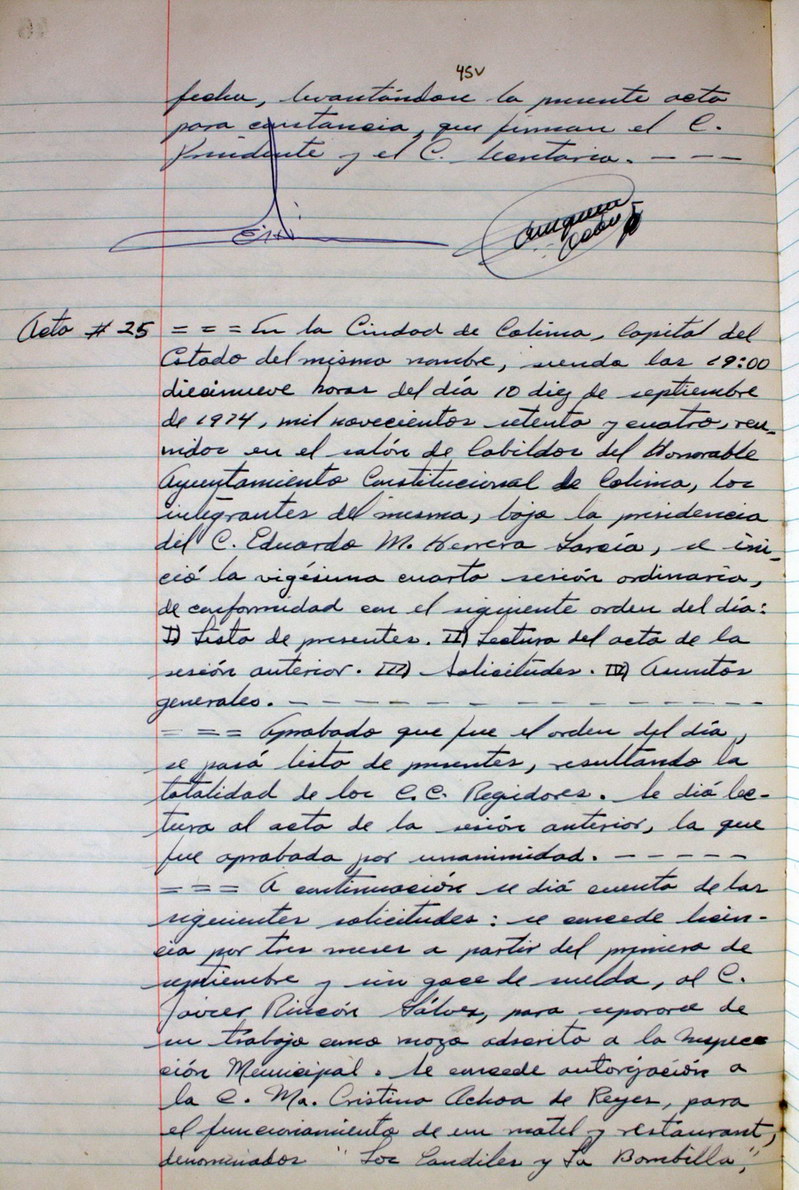 45v
fecha, levantándose la presente acta
para constancia, que firman el C.
Presidente y el C. Secretario. - - -
Acta # 25 = = = En la Ciudad de Colima, Capital del
Estado del mismo nombre, siendo las 19:00
diecinueve horas del día 10 diez de septiembre
de 1974, mil novecientos setenta y cuatro, reu-
nidos en el salón de Cabildos del Honorable
Ayuntamiento Constitucional de Colima, los
integrantes del mismo, bajo la presidencia
del C. Eduardo M. Herrera García, se ini-
ció la vigésima cuarta sesión ordinaria,
de conformidad con el siguiente orden del día:
I) Lista de presentes. II) Lectura del acta de la
sesión anterior. III) Solicitudes. IV) Asuntos
generales. - - - - - - - - - - - - - - - -
= = = Aprobado que fue el orden del día,
se pasó lista de presentes, resultando la
totalidad de los C.C. Regidores. Se dió lec-
tura al acta de la sesión anterior, la que
fue aprobada por unanimidad. - - - - -
= = = A continuación se dió cuenta de las
siguientes solicitudes: se concede licen-
cia por tres meses a partir del primero de
septiembre y sin goce de sueldo, al C.
Javier Rincón Gálvez, para separarse de
su trabajo como mozo adscrito a la Inspec-
ción Municipal. Se concede autorización a
la C. Ma. Cristina Ochoa de Reyes, para
el funcionamiento de un motel y restaurant,
denominados "Los Candiles y La Bombilla",